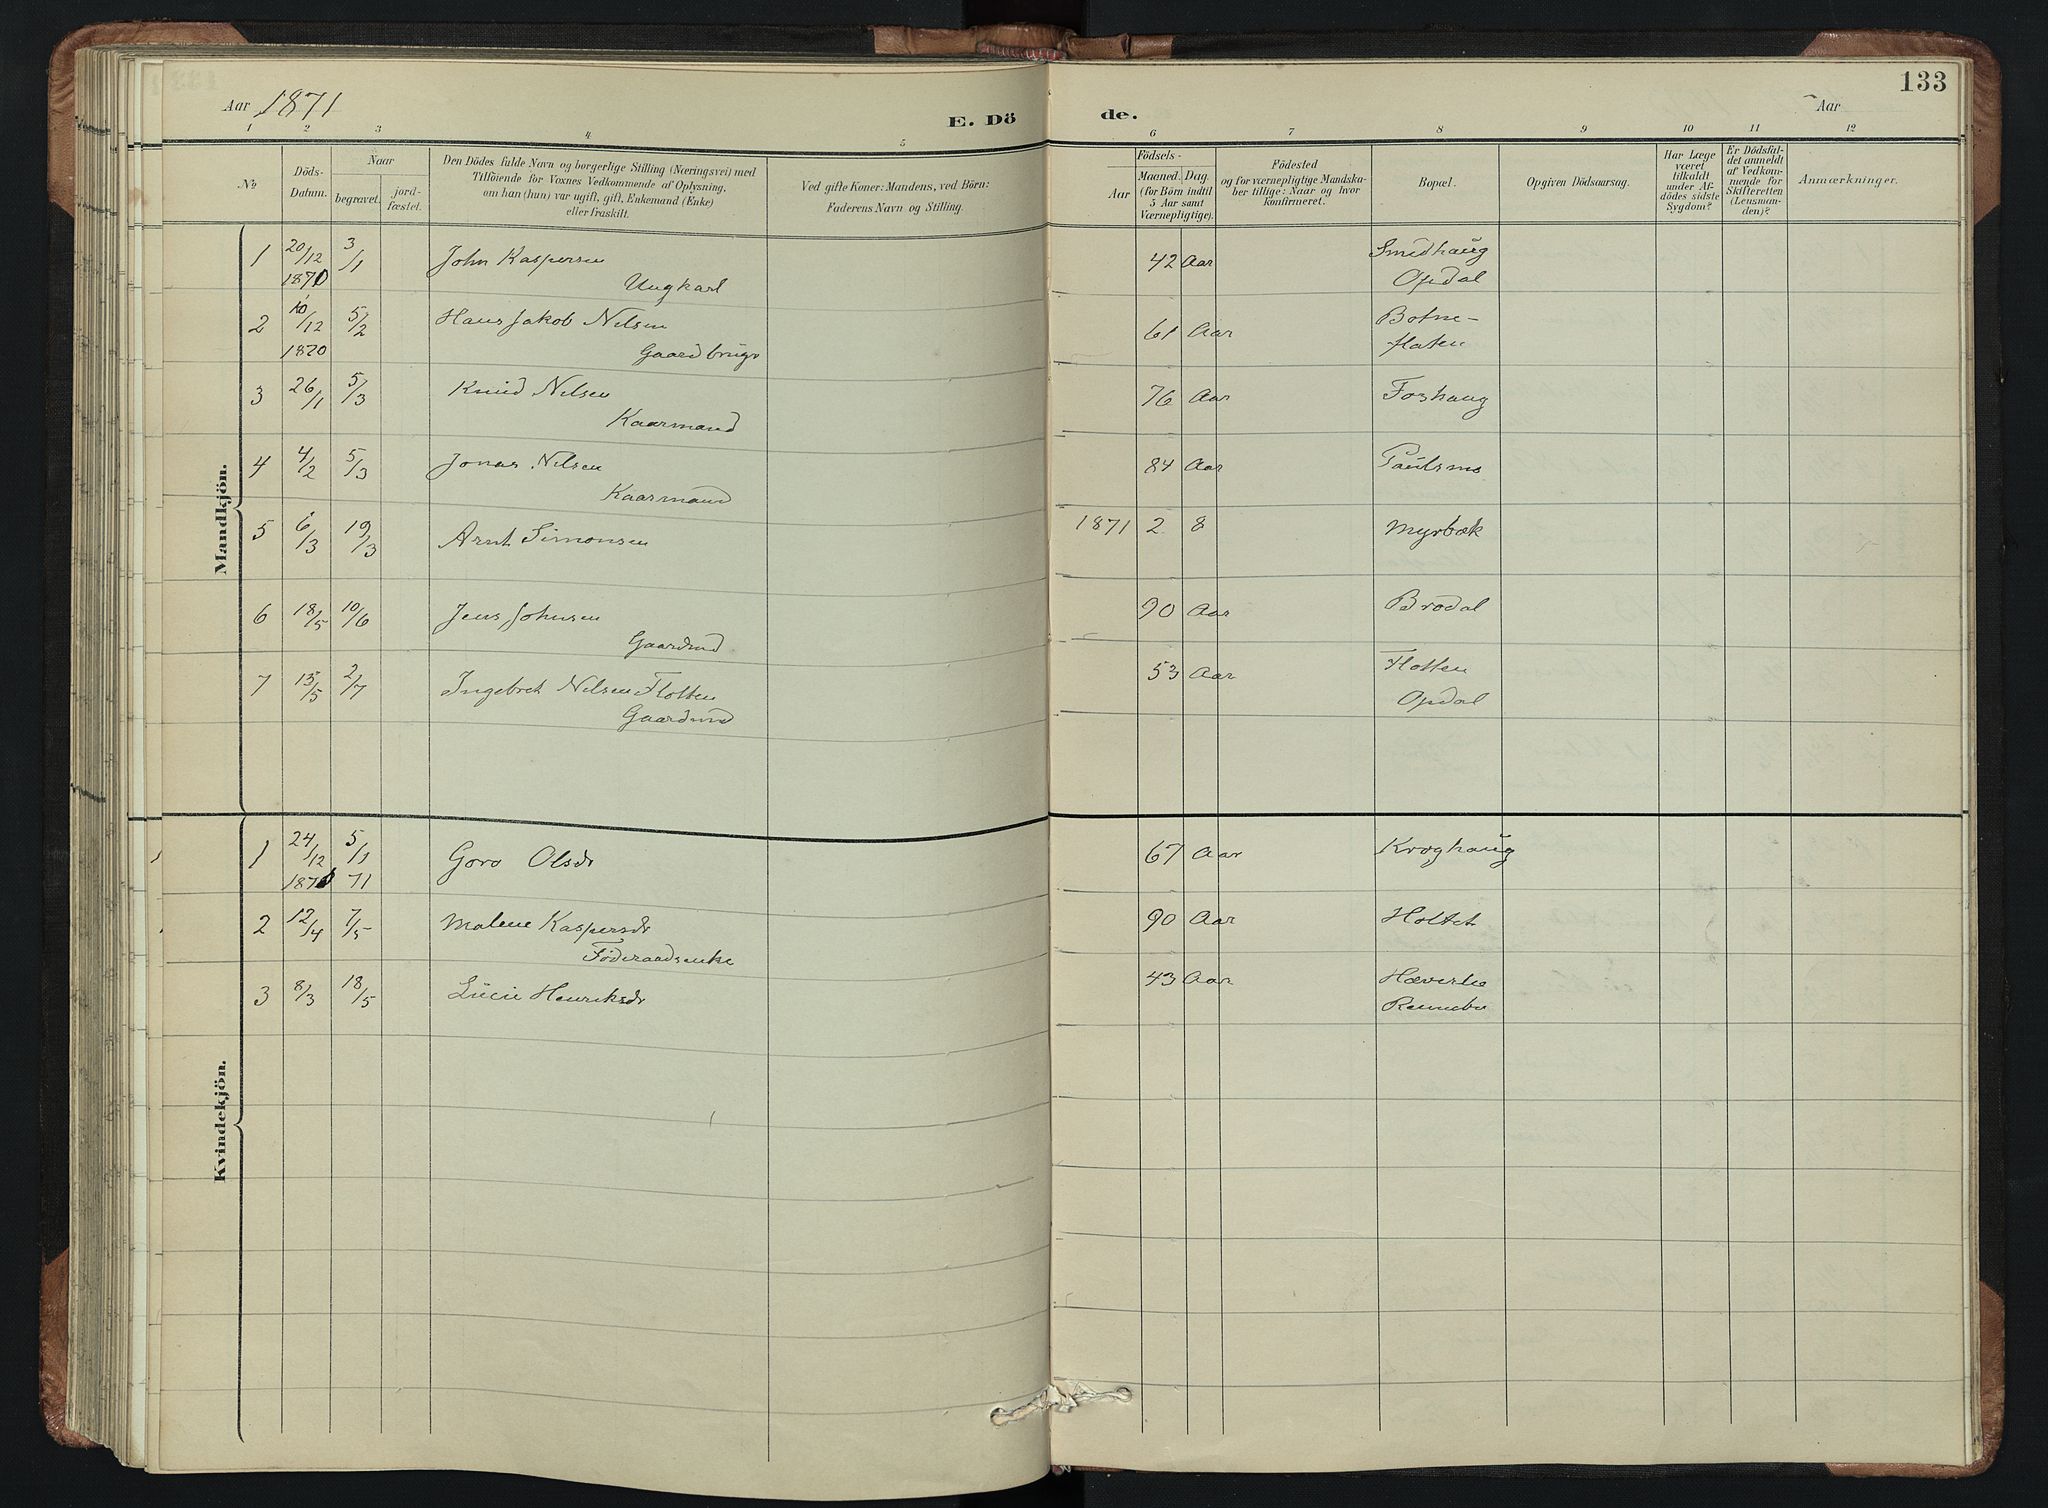 133
Aar 1871
E. Dö
de.
Aar
1 2 3 4 5
6 7 8 9 10 11 12
No
Döds-
Datum.
Naar
begravet.
jord-
fæstet.
Den Dödes fulde Navn og borgerlige Stilling (Næringsvei) med
Tilföiende for Voxnes Vedkommende af Oplysning,
om han (hun) var ugift, gift, Enkemand (Enke)
eller fraskilt.
Ved gifte Koner: Mandens, ved Börn:
Faderens Navn og Stilling.
Födsels-
Aar
Maaned. Dag.
(for Börn indtil
5 Aar samt
Værnepligtige).
Födested
og for værnepligtige Mandska-
ber tillige: Naar og hvor
konfirmeret.
Bopæl.
Opgiven Dödsaarsag.
Har Læge
været
tilkaldt
under Af-
dödes sidste
Sygdom?
Er Dödsfal-
det anmeldt
af Vedkom-
mende for
Skifteretten
(Lensman-
den)?
Anmærkninger.
Mandkjön.
1 20/12 3/1 John Kaspersen 42 Aar Smedhaug
1870 Ungkarl Opdal
2 10/12 5/2 Hans Jakob Nilsen 61 Aar Botne-
1870 Gaardbrugr flaten
3 26/1 5/3 Knud Nilsen 76 Aar Foshaug
Kaarmand
4 4/2 5/3 Jonas Nilsen 84 Aar Paulsmo
Kaarmand
5 6/3 19/3 Arnt Simonsen 1871 2 8 Myrbæk
6 18/5 10/6 Jens Johnsen 90 Aar Brødal
Gaardmd
7 15/5 2/7 Ingebret Nilsen Flotten 53 Aar Flotten
Gaardmd Opdal
Kvindekjön.
1 24/12 5/1 Goro Olsdr 67 Aar Kroghaug
1870 71
2 12/4 7/5 Malene Kaspersdr 90 Aar Holtet
Föderaadsenke
3 8/3 18/5 Lucie Henriksdr 43 Aar Hæverlie
Rennebu